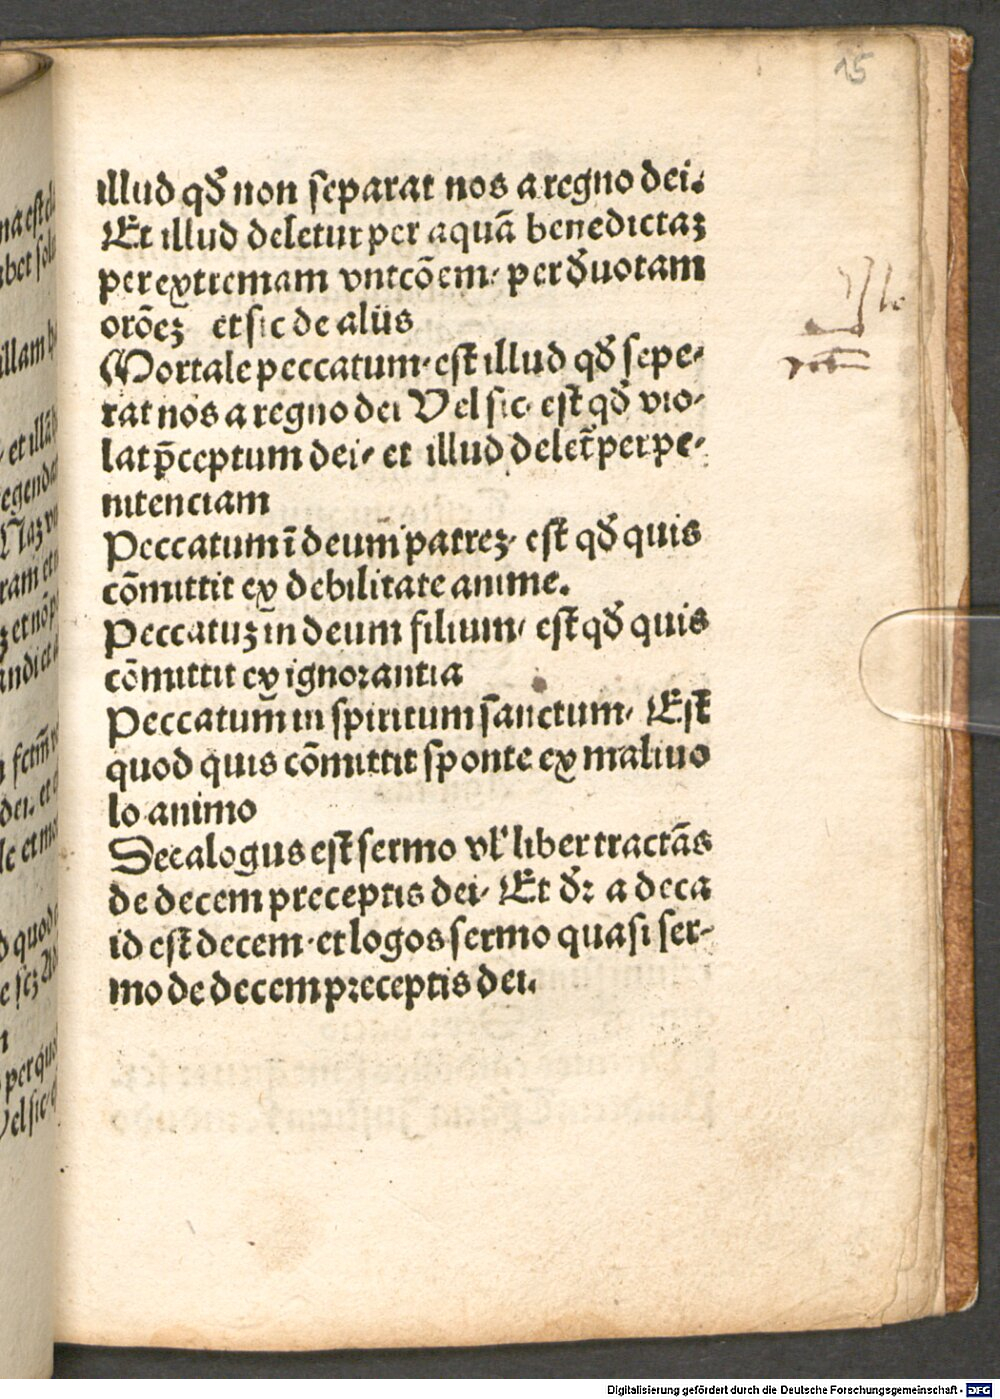 15
illud qð non separat nos a regno dei.
Et illud deletur per aquā benedictaꝫ
per extremam vntcōem· per ðuotam
orōeꝫ et sic de aliis
Mortale peccatum· est illud qð sepe⸗
rat nos a regno dei Vel sic· est qð vio⸗
lat p̄ceptum dei· et illud delet̄ per pe⸗
nitenciam
Peccatum ī deum patreꝫ· est qð quis
cōmittit ex debilitate anime.
Peccatuꝫ in deum filium· est qð quis
cōmittit ex ignorantia
Peccatum in spiritum sanctum· Est
quod quis cōmittit sponte ex maliuo
lo animo
Decalogus est sermo vl' liber tractās
de decem preceptis dei· Et ðꝛ a deca
id est decem· et logos sermo quasi ser⸗
mo de decem preceptis dei.
Digitalisierung gefördert durch die Deutsche Forschungsgemeinschaft - DFG